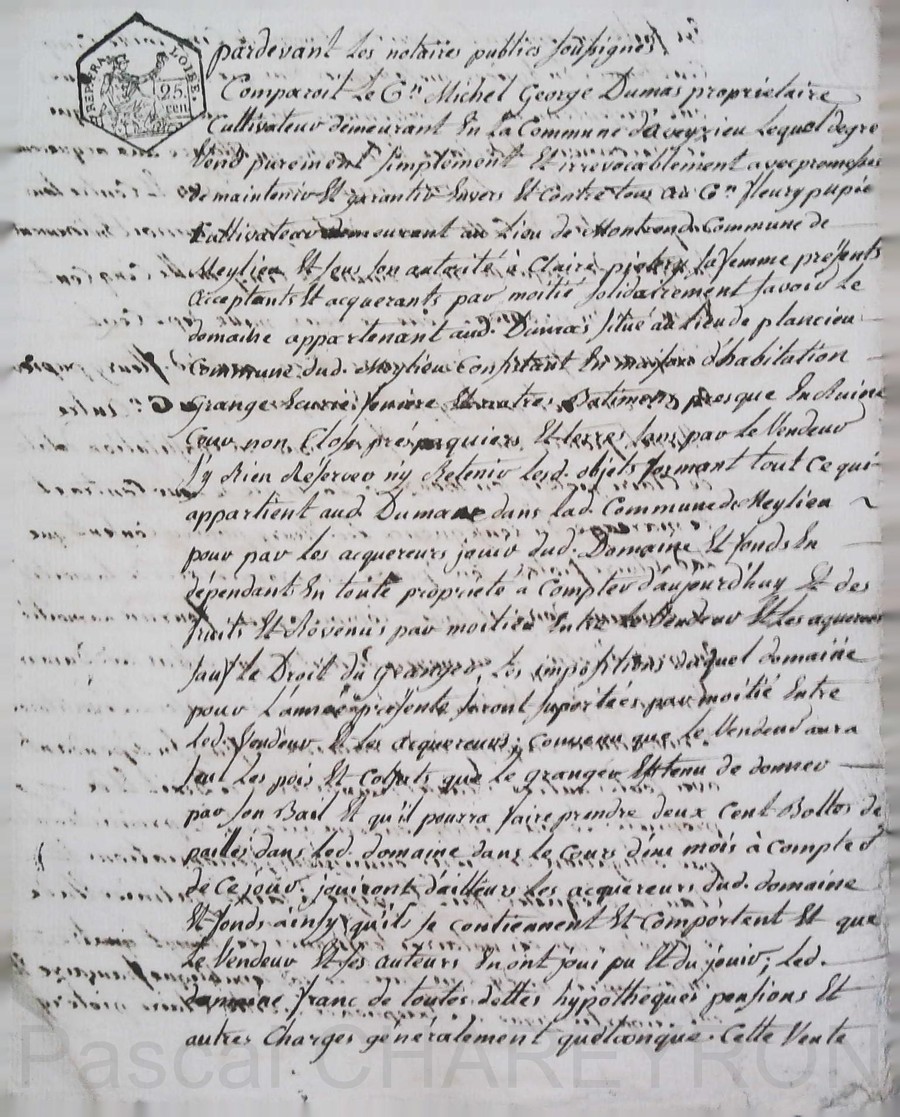 REP. FRA. LOIRE.
25
cen
pardevant Les notaires publics soussignés
Comparoit Le C.en Michel George Dumas propriétaire
Cultivateur demeurant En La Commune d'aveyzieu Lequel de gré
Vend purement simplement Et irrevocablement avec promesse
de maintenir Et garantir Envers Et Contre tous au C.en fleury pupié
Cultivateur demeurant au Lieu de Montrond Commune de
Meylieu Et sous son autorité à Claire sa femme présents
acceptants Et acquerants par moitié solidairement savoir Le
domaine appartenant aud. Dumas situé au Lieu de plancieu
Commune dud. Meylieu Consistant En maison d'habitation
grange Ecurie feniere Et autres Batiments presque En Ruine
Cour non Close prés paquiers Et terres sans par Le Vendeur
s'y Rien Réserver n'y Retenir lesd. objets formant tout ce qui
appartient aud. Dumas dans lad. Commune de Meylieu
pour par Les acquereurs jouir dud. Domaine Et fonds En
dépendants En toute propriété à Compter d'aujourd'huy Et des
fruits Et Revenus par moitié Entre Le Vendeur Et Les aquereurs
sauf Le Droit du granger, Les impositions duquel domaine
pour L'année présente seront suportées par moitié Entre
Led. Vendeur Et Les acquereurs; Convenu que Le Vendeur aura
seul Les pois Et Colsats que Le granger Est tenu de donner
par son Bail Et qu'il pourra faire prendre deux Cent Bottes de
pailles dans Led. domaine dans Le Cours d'un mois à Compter
de Ce jour. jouiront d'ailleurs Les acquereurs dud. domaine
Et fonds ainsy qu'ils se contiennent Et Comportent Et que
Le Vendeur Et ses auteurs En ont joui pu Et du jouir; Led.
domaine franc de toutes dettes hypotheques pensions Et
autres Charges généralement quelconque. Cette Vente
Pascal CHAREYRON